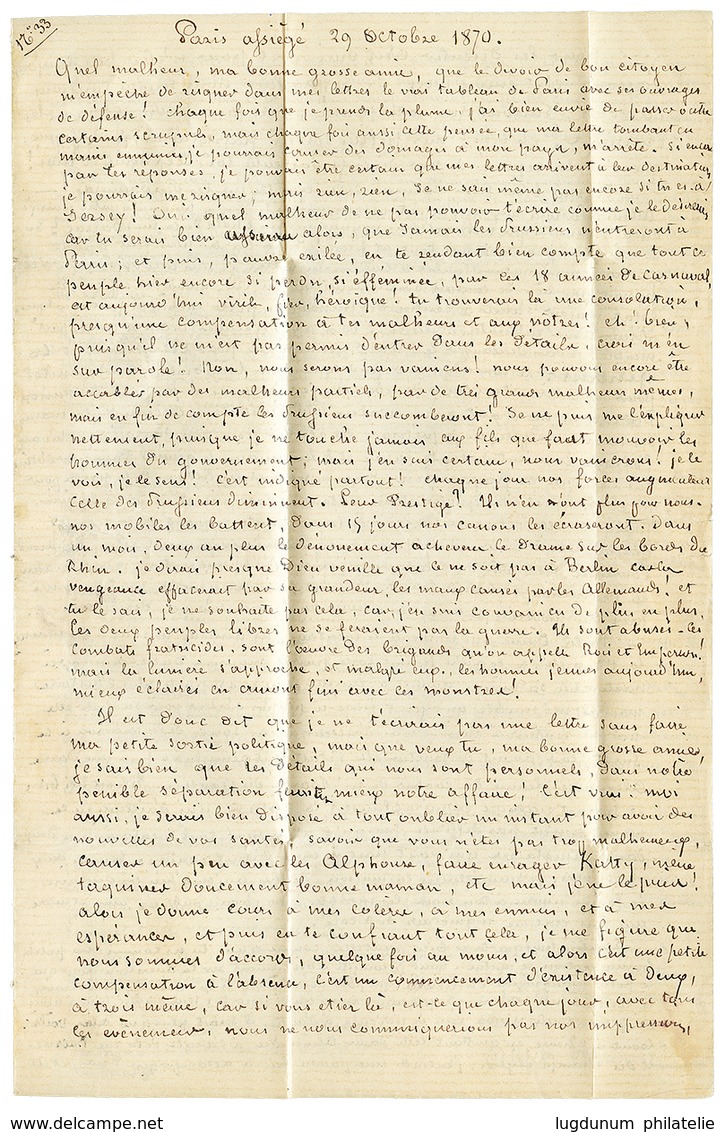 N° 33
Paris assiégé 29 Octobre 1870.
Quel malheur, ma bonne grosse amie, que le devoir de bon citoyen
m'empeche de résigner dans mes lettres le vrai tableau de Paris avec ses ouvrages
de défense! Chaque fois que je prends la plume, j'ai bien envie de passer outre
certains scrupules, mais chaque fois aussi cette pensée, que ma lettre tombant en
mains ennemies, je pourrais causer des domages à mon pays, m'arrête. Si encore
par tes réponses, je pouvais être certain que mes lettres arrivent à leur destination,
je pourrais me résigner; mais rien, rien, Je ne sais même pas encore si tu es à
Jersey! Oui quel malheur de ne pas pouvoir t'écrire comme je le désirerais
car tu serais bien alors, que Jamais les Prussiens n'entreront à
Paris; et puis, pauvre exilée, en te rendant bien compte que tout ce
peuple hier encore si perdu, si éffeminée, par ces 18 années de Carnaval,
est aujourd'hui virile, fier, héroïque! tu trouverais là une consolation,
presqu'une compensation à tes malheurs et aux nôtres! eh! bien,
puisqu'il ne m'est pas permis d'entrer dans les détails, crois m'en
sur parole! Non, nous serons pas vaincus! nous pouvons encore être
accablés par des malheurs partiels, par de très grands malheurs mêmes,
mais en fin de compte les Prussiens succomberont! Je ne puis me l'expliquer
nettement, puisque je ne touche jamais aux fils que font mouvoir les
hommes du gouvernement; mais j'en suis certain, nous vaincrons! je le
vois, je le sens! C'est indiqué partout! chaque jour nos forces augmentent
celle des Prussiens diminuent. Leur Prestige! Ils n'en ont plus pour nous.
nos mobiles les battent, dans 15 jours nos canons les écraseront. Dans
un mois, deux au plus le dénouement achevera le drame sur les bords du
Rhin. je dirais presque Dieu veuille que ce ne soit pas à Berlin car la
vengeance effacerait par sa grandeur, les maux causés par les Allemands! et
tu le sais, je ne souhaite pas cela, car j'en suis convaincu de plus en plus,
les deux peuples libres ne se feraient pas la guerre. Ils sont abusés - Ces
combats fratricides, sont l'œuvre des brigands qu'on appelle Rois et Empereurs!
mais la lumière s'approche, et malgré eux, les hommes jeunes aujourd'hui,
mieux éclairés en auront fini avec ces monstres!
Il est donc dit que je ne t'écrirais pas une lettre sans faire
ma petite sortie politique, mais que veux tu, ma bonne grosse amie,
je sais bien que les détails qui nous sont personnels, dans notre
penible séparation mieux notre affaire! C'est vrai! moi
aussi, je serais bien disposé à tout oublier un instant pour avoir des
nouvelles de vos santés, savoir que vous n'êtes pas trop malheureux,
causer un peu avec les Alphonse, faire enrager Katty, même
taquiner doucement bonne maman, etc mais je ne le peux!
alors je donne cours à mes colères, à mes ennuis, et à mes
espérances, et puis en te confiant tout cela, je me figure que
nous sommes d'accord, quelque fois au moins, et alors c'est une petite
compensation à l'absence, c'est un commencement d'éxistence à deux,
à trois même, car si vous etiez là, est-ce que chaque jour, avec tous
ces évènements, nous ne nous communiquerions pas nos impressions,
www.delcampe.net
lugdunum philatelie